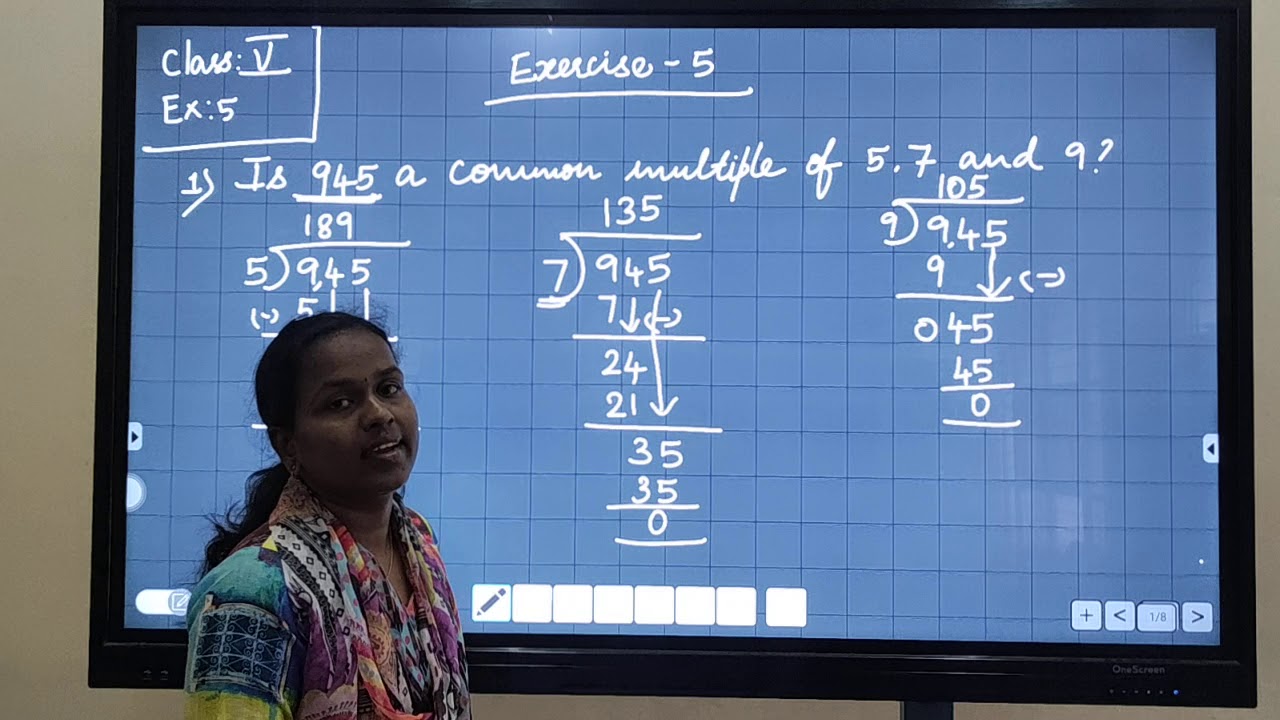 Class: V
Ex: 5
Exercise - 5
1) Is 945 a common multiple of 5, 7 and 9?
189
5) 945
(-) 5
135
7) 945
7 (-)
24
21
35
35
0
105
9) 945
9 (-)
045
45
0
+ < 1/8 >
OneScreen